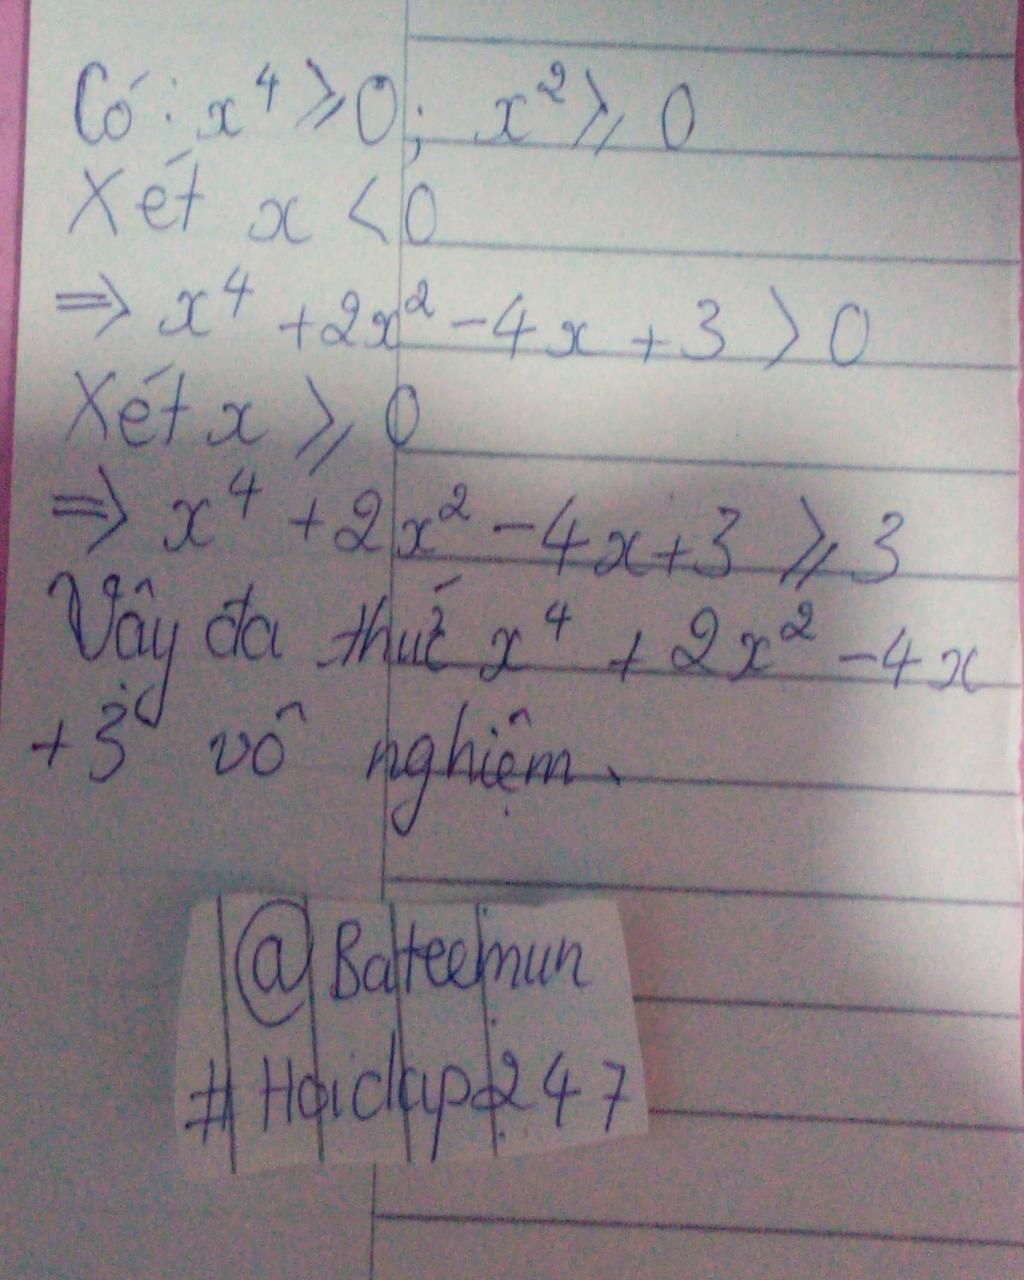 Có : x⁴ ⩾ 0; x² ⩾ 0
Xét x < 0
⇒ x⁴ + 2x² - 4x + 3 > 0
Xét x ⩾ 0
⇒ x⁴ + 2x² - 4x + 3 ⩾ 3
Vậy đa thức x⁴ + 2x² - 4x
+ 3 vô nghiệm.
@Bateemun
# Hoidap247